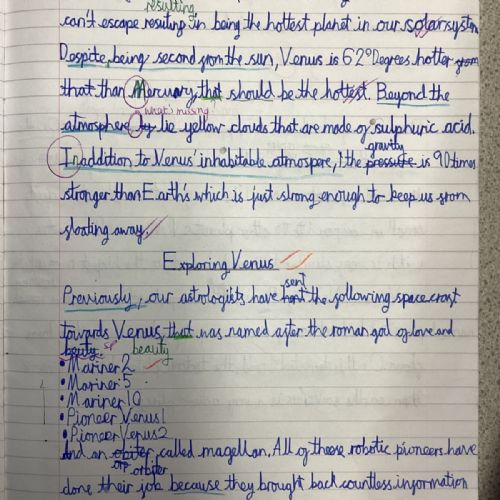 resulting
can't escape resuting in being the hottest planet in our solar system
Despite, being second from the sun, Venus is 62° Degrees hotter from
that than Mercuary, that should be the hottest. Beyond the
what's missing
atmosphere, by lie yellow clouds that are made of sulphuric acid.
gravity
In addition to Venus' inhabitable atmospere, the pressure is 90 times
stronger than Earth's which is just strong enough to keep us from
floating away.
Exploring Venus
sent
Previously, our astrologists have the following spacecraft
towards Venus, that was named after the roman god of love and
beuty. sp beauty
• Mariner 2
• Mariner 5
• Mariner 10
• Pioneer Venus 1
• Pioneer Venus 2
And an obiter, called magellan. All of these robotic pioneers have
orbiter
done their job because they brought back countless information